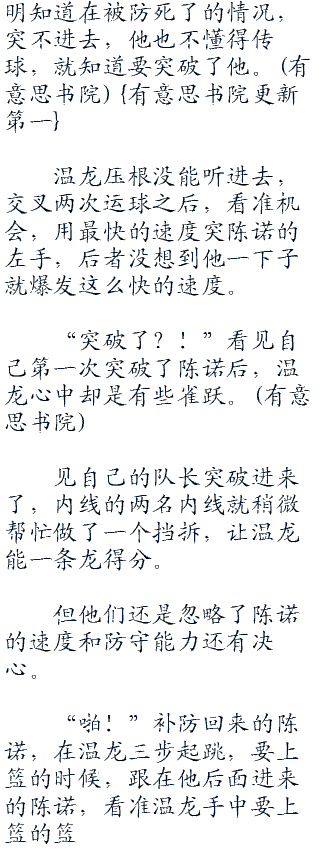 明知道在被防死了的情况，
突不进去，他也不懂得传
球，就知道要突破了他。(有
意思书院){有意思书院更新
第一}
温龙压根没能听进去，
交叉两次运球之后，看准机
会，用最快的速度突陈诺的
左手，后者没想到他一下子
就爆发这么快的速度。
“突破了？！”看见自
己第一次突破了陈诺后，温
龙心中却是有些雀跃。(有意
思书院)
见自己的队长突破进来
了，内线的两名内线就稍微
帮忙做了一个挡拆，让温龙
能一条龙得分。
但他们还是忽略了陈诺
的速度和防守能力还有决
心。
“啪！”补防回来的陈
诺，在温龙三步起跳，要上
篮的时候，跟在他后面进来
的陈诺，看准温龙手中要上
篮的篮